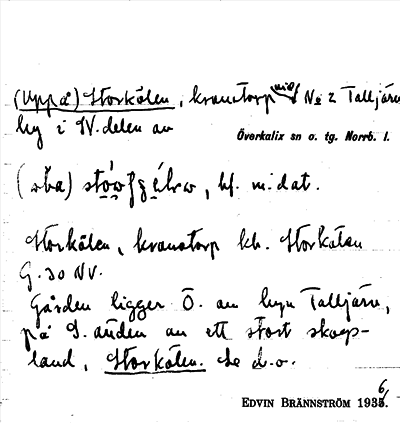 (Uppå) Storkölen, kronotorp vid № 2 Talljärv
by i N. delen av
Överkalix sn o. tg. Norrb. l.
bf. m. dat.
Storkölen, kronotorp kh. Storkölen
G. 30 NV.
Gården ligger Ö. om byn Talljärv,
på S. änden av ett stort skogs-
land, Storkölen. Se d.o.
EDVIN BRÄNNSTRÖM 1936.